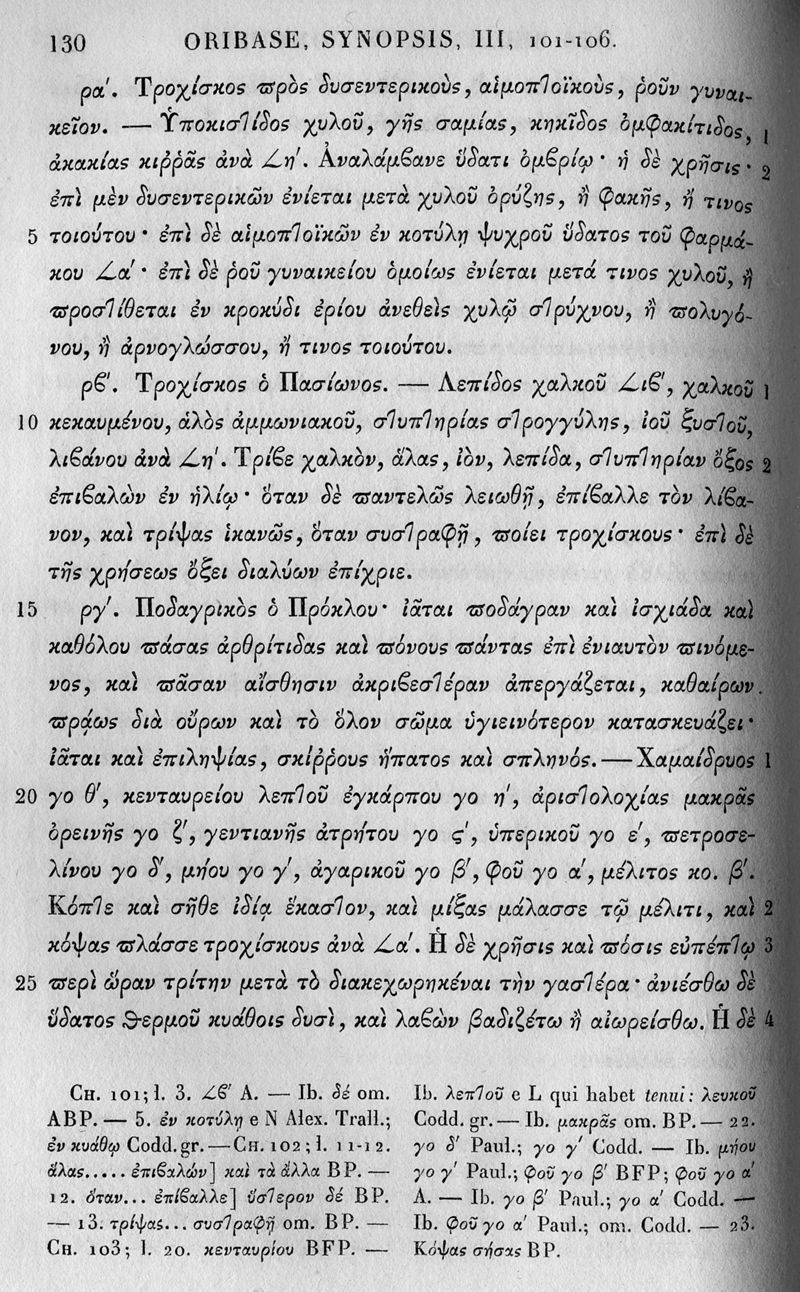 130 ORIBASE, SYNOPSIS, III, 101-106.
ρα΄. Τροχίσκος πρὸς δυσεντερικοὺς, αἱμοπτοϊκοὺς, ῥοῦν γυναι-
κεῖον. — Ὑποκιστίδος χυλοῦ, γῆς σαμίας, κηκῖδος ὀμφακίτιδος, 1
ἀκακίας κιῤῥᾶς ἀνὰ ∠η΄. Ἀναλάμβανε ὕδατι ὀμβρίῳ· ἡ δὲ χρῆσις· 2
ἐπὶ μὲν δυσεντερικῶν ἐνίεται μετὰ χυλοῦ ὀρύζης, ἢ φακῆς, ἤ τινος
5 τοιούτου· ἐπὶ δὲ αἱμοπτοϊκῶν ἐν κοτύλῃ ψυχροῦ ὕδατος τοῦ φαρμά-
κου ∠α΄· ἐπὶ δὲ ῥοῦ γυναικείου ὁμοίως ἐνίεται μετά τινος χυλοῦ, ἢ
προστίθεται ἐν κροκύδι ἐρίου ἀνεθεὶς χυλῷ στρύχνου, ἢ πολυγό-
νου, ἢ ἀρνογλώσσου, ἤ τινος τοιούτου.
ρβ΄. Τροχίσκος ὁ Πασίωνος. — Λεπίδος χαλκοῦ ∠ιβ΄, χαλκοῦ 1
10 κεκαυμένου, ἁλὸς ἀμμωνιακοῦ, στυπτηρίας στρογγύλης, ἰοῦ ξυστοῦ,
λιβάνου ἀνὰ ∠η΄. Τρίβε χαλκὸν, ἅλας, ἰὸν, λεπίδα, στυπτηρίαν ὄξος 2
ἐπιβαλὼν ἐν ἡλίῳ· ὅταν δὲ παντελῶς λειωθῇ, ἐπίβαλλε τὸν λίβα-
νον, καὶ τρίψας ἱκανῶς, ὅταν συστραφῇ, ποίει τροχίσκους· ἐπὶ δὲ
τῆς χρήσεως ὄξει διαλύων ἐπίχριε.
15 ργ΄. Ποδαγρικὸς ὁ Πρόκλου· ἰᾶται ποδάγραν καὶ ἰσχιάδα καὶ
καθόλου πάσας ἀρθρίτιδας καὶ πόνους πάντας ἐπὶ ἐνιαυτὸν πινόμε-
νος, καὶ πᾶσαν αἴσθησιν ἀκριβεστέραν ἀπεργάζεται, καθαίρων
πράως διὰ οὔρων καὶ τὸ ὅλον σῶμα ὑγιεινότερον κατασκευάζει·
ἰᾶται καὶ ἐπιληψίας, σκίῤῥους ἥπατος καὶ σπληνός. — Χαμαίδρυος 1
20 γο θ΄, κενταυρείου λεπτοῦ ἐγκάρπου γο η΄, ἀριστολοχίας μακρᾶς
ὀρεινῆς γο ζ΄, γεντιανῆς ἀτρήτου γο ς΄, ὑπερικοῦ γο ε΄, πετροσε-
λίνου γο δ΄, μήου γο γ΄, ἀγαρικοῦ γο β΄, φοῦ γο α΄, μέλιτος κο. β΄.
Κόπτε καὶ σῆθε ἰδίᾳ ἕκαστον, καὶ μίξας μάλασσε τῷ μέλιτι, καὶ 2
κόψας πλάσσε τροχίσκους ἀνὰ ∠α΄. Ἡ δὲ χρῆσις καὶ πόσις εὐπέπτῳ 3
25 περὶ ὥραν τρίτην μετὰ τὸ διακεχωρηκέναι τὴν γαστέρα· ἀνιέσθω δὲ
ὕδατος θερμοῦ κυάθοις δυσὶ, καὶ λαβὼν βαδιζέτω ἢ αἰωρείσθω. Ἡ δὲ 4
CH. 101; l. 3. ∠β΄ A. — Ib. δέ om.
ABP. — 5. ἐν κοτύλῃ e N Alex. Trall.;
ἐν κυάθῳ Codd. gr. — CH. 102; l. 11-12.
ἅλας..... ἐπιβαλών] καὶ τὰ ἄλλα BP. —
12. ὅταν... ἐπίβαλλε] ὕστερον δέ BP.
— 13. τρίψας... συστραφῇ om. BP. —
CH. 103; l. 20. κενταυρίου BFP. —
Ib. λεπτοῦ e L qui habet tenui: λευκοῦ
Codd. gr. — Ib. μακρᾶς om. BP. — 22.
γο δ΄ Paul.; γο γ΄ Codd. — Ib. μήου
γο γ΄ Paul.; φοῦ γο β΄ BFP; φοῦ γο α΄
A. — Ib. γο β΄ Paul.; γο α΄ Codd. —
Ib. φοῦ γο α΄ Paul.; om. Codd. — 23.
Κόψας σήσας BP.